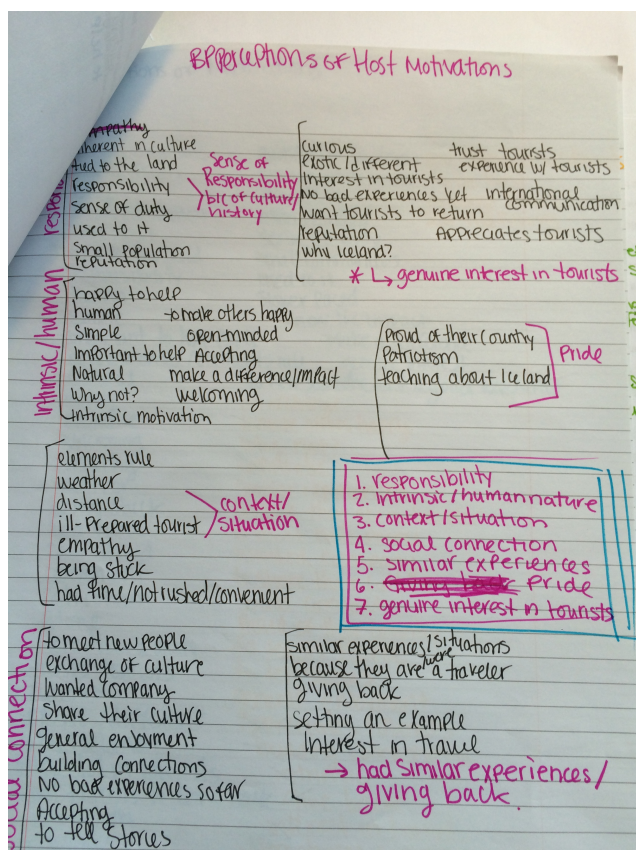 BP Perceptions of Host Motivations
inherent in culture
tied to the land
responsibility
sense of duty
used to it
small population
reputation
sense of
Responsibility
b/c of culture/
history
curious
exotic/different
interest in tourists
No bad experiences yet
want tourists to return
reputation
why Iceland?
trust tourists
experience w/ tourists
international
communication
Appreciates tourists
* ↳ genuine interest in tourists
intrinsic/human
happy to help
human
simple
important to help
Natural
why not?
intrinsic motivation
to make others happy
open-minded
Accepting
make a difference/impact
welcoming
proud of their country
Patriotism
teaching about Iceland
Pride
elements rule
weather
distance
ill-prepared tourist
empathy
being stuck
had time/not rushed/convenient
context/
situation
1. responsibility
2. intrinsic/human nature
3. context/situation
4. social connection
5. similar experiences
6. Giving back Pride
7. genuine interest in tourists
social connection
to meet new people
exchange of culture
wanted company
share their culture
general enjoyment
building connections
No bad experiences so far
Accepting
to tell stories
similar experiences/situations
because they are/were a traveler
giving back
setting an example
interest in travel
→ had similar experiences/
giving back.